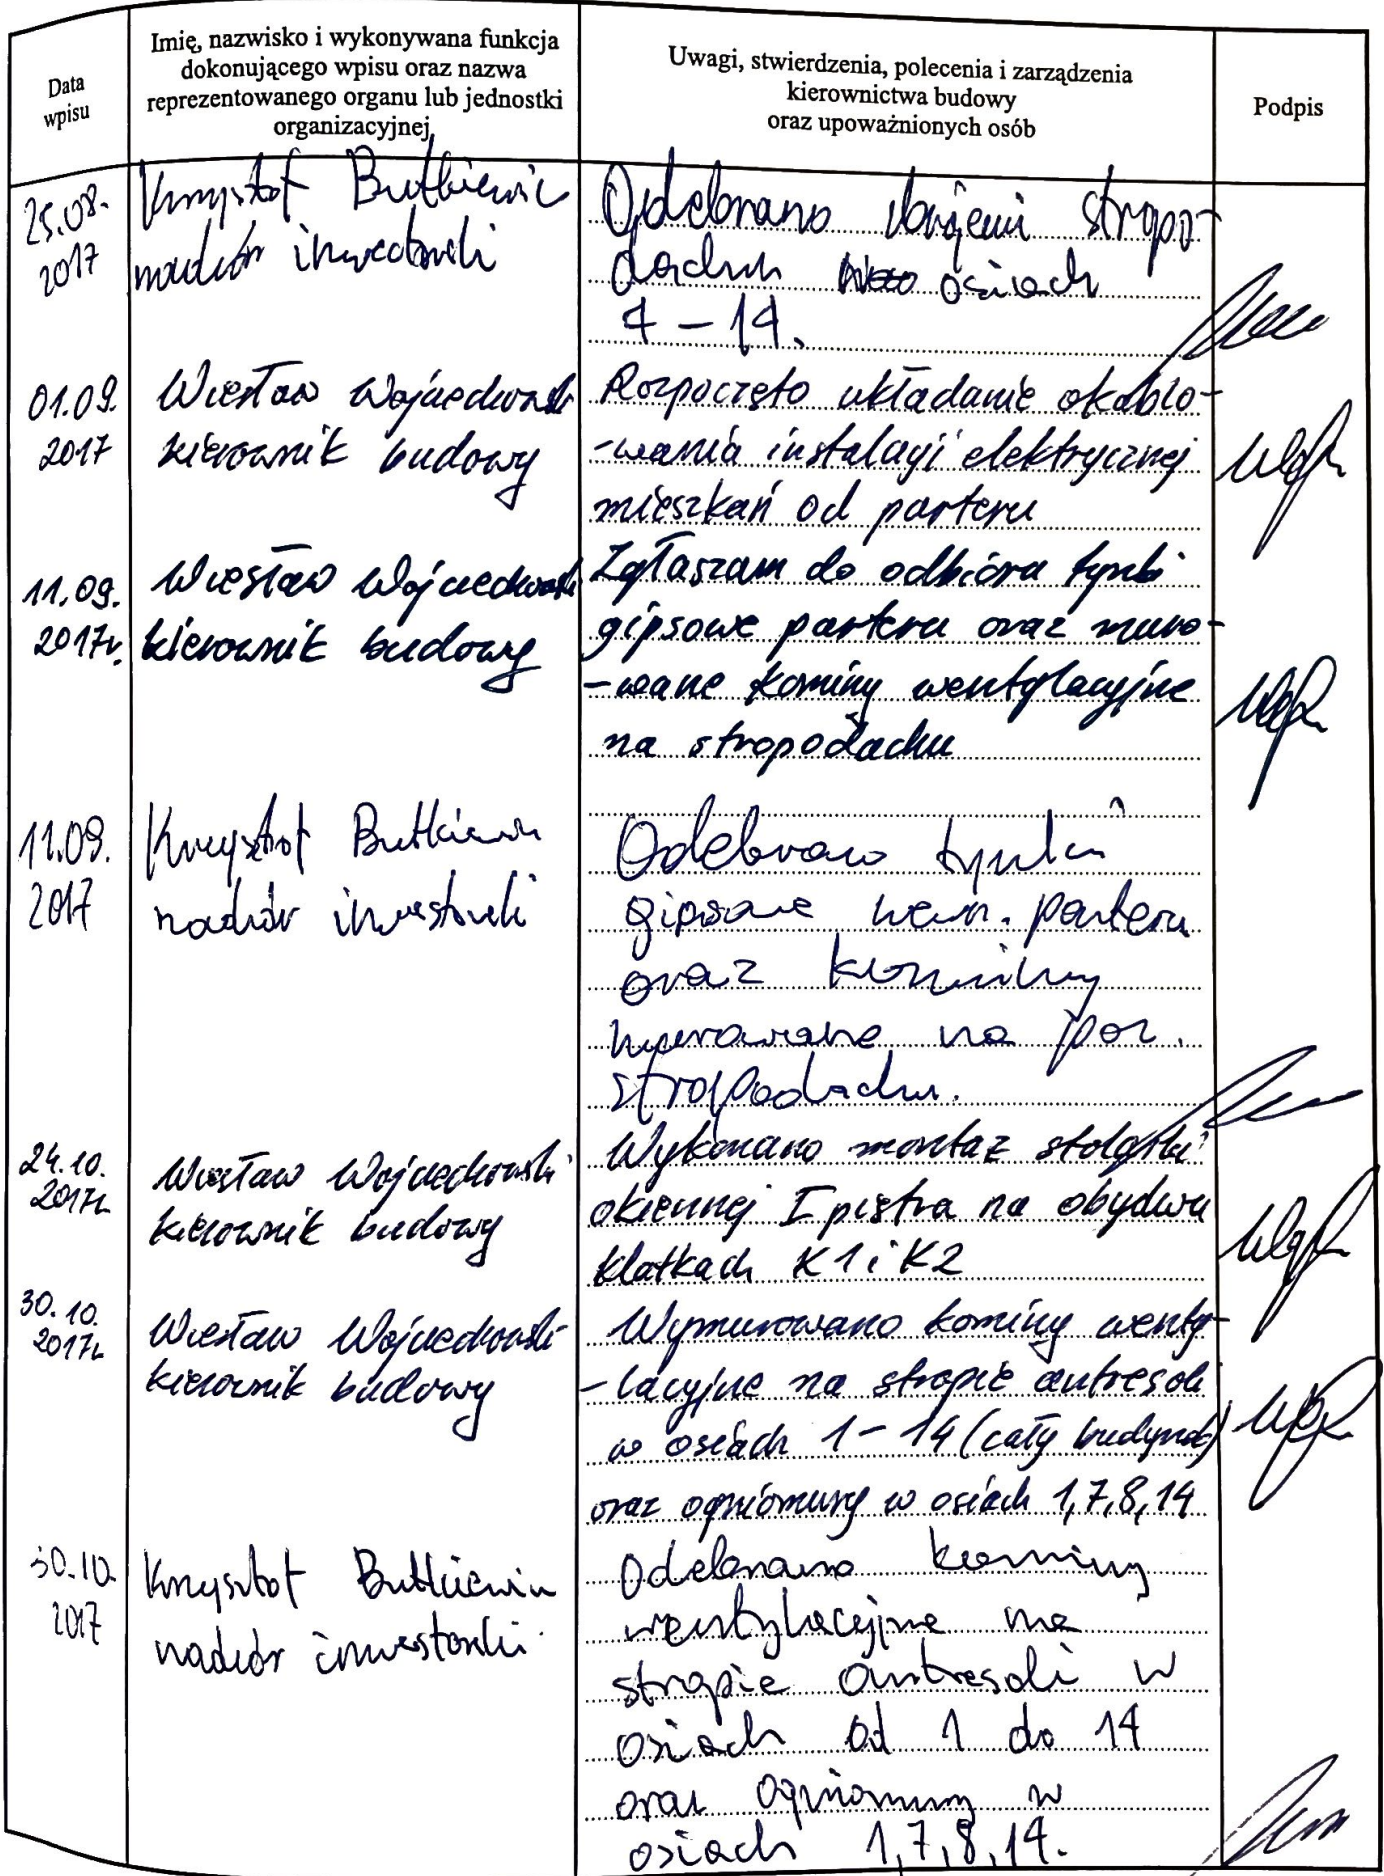 Data
wpisu
Imię, nazwisko i wykonywana funkcja
dokonującego wpisu oraz nazwa
reprezentowanego organu lub jednostki
organizacyjnej
Uwagi, stwierdzenia, polecenia i zarządzenia
kierownictwa budowy
oraz upoważnionych osób
Podpis
25.08.
2017
Krzysztof Butkiewicz
nadzór inwestorski
Odebrano zbrojenie stropo-
dachu osiach
4 – 14.
01.09.
2017
Wiesław Wojciechowski
kierownik budowy
Rozpoczęto układanie okablo-
-wania instalacji elektrycznej
mieszkań od parteru
11.09.
2017r.
Wiesław Wojciechowski
kierownik budowy
Zgłaszam do odbioru tynki
gipsowe parteru oraz muro-
-wane kominy wentylacyjne
na stropodachu
11.09.
2017
Krzysztof Butkiewicz
nadzór inwestorski
Odebrano tynki
gipsowe wewn. parteru
oraz kominy
murowane na poz.
stropodachu.
24.10.
2017r.
Wiesław Wojciechowski
kierownik budowy
Wykonano montaż stolarki
okiennej I piętra na obydwu
klatkach K1 i K2
30.10.
2017r.
Wiesław Wojciechowski
kierownik budowy
Wymurowano kominy wenty-
-lacyjne na stropie antresoli
w osiach 1 – 14 (cały budynek)
oraz ogniomury w osiach 1,7,8,14
30.10.
2017
Krzysztof Butkiewicz
nadzór inwestorski
Odebrano kominy
wentylacyjne na
stropie antresoli w
osiach od 1 do 14
oraz ogniomury w
osiach 1,7,8,14.